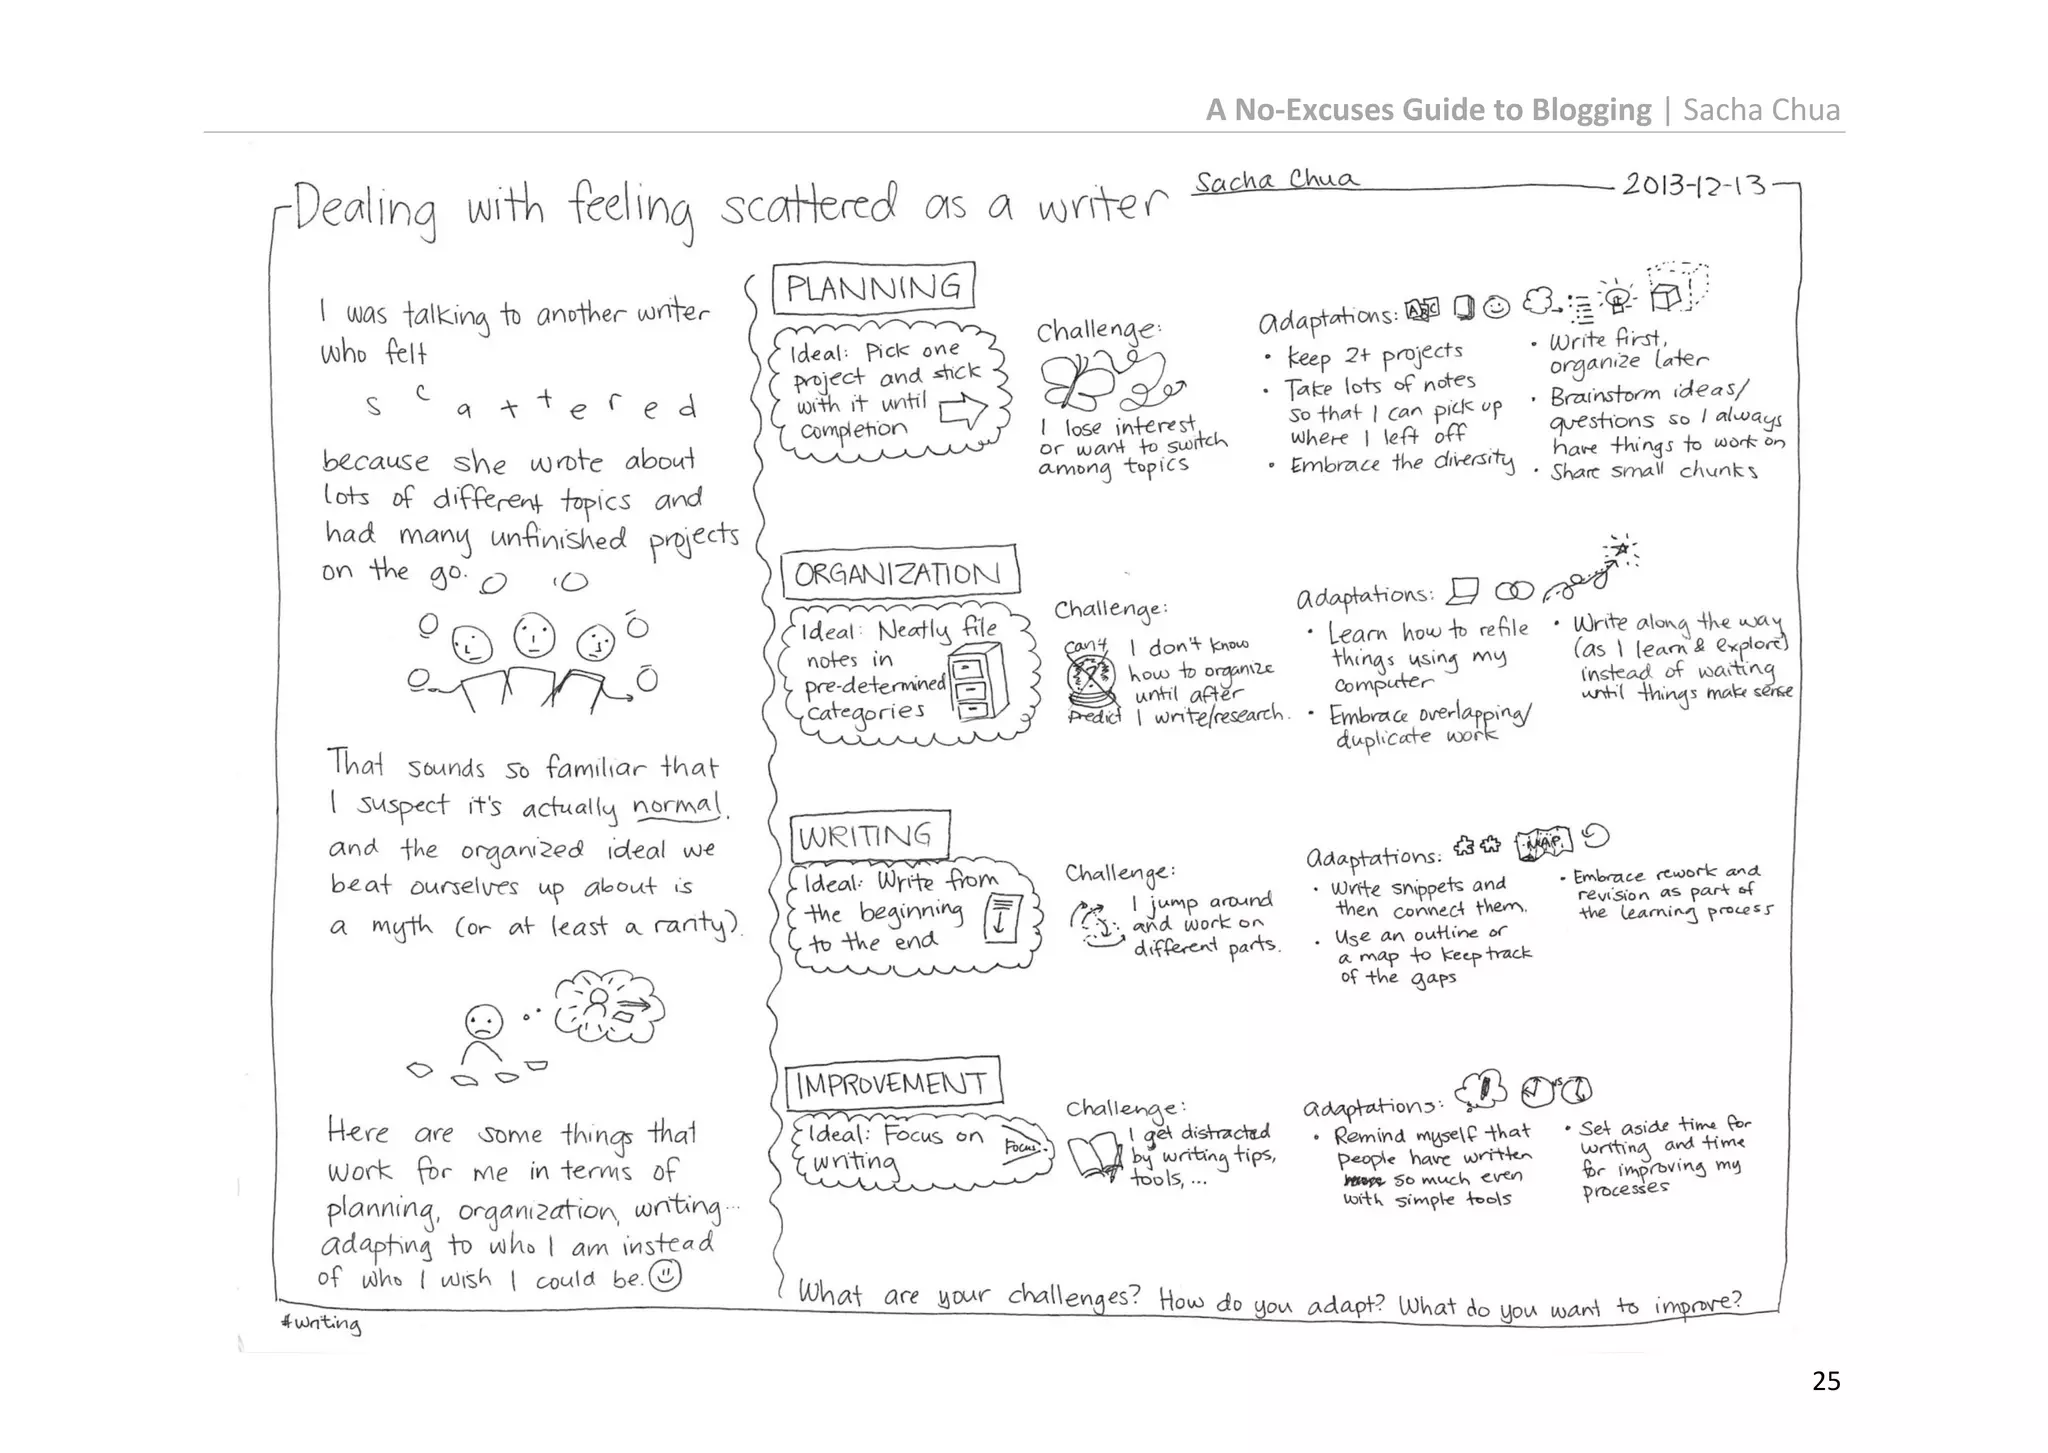 A No-Excuses Guide to Blogging | Sacha Chua
Dealing with feeling scattered as a writer
Sacha Chua
2013-12-13
I was talking to another writer
who felt
scattered
because she wrote about
lots of different topics and
had many unfinished projects
on the go.
That sounds so familiar that
I suspect it's actually normal.
and the organized ideal we
beat ourselves up about is
a myth (or at least a rarity).
Here are some things that
work for me in terms of
planning, organization, writing...
adapting to who I am instead
of who I wish I could be.
#writing
PLANNING
Ideal: Pick one
project and stick
with it until
completion
Challenge:
I lose interest
or want to switch
among topics
Adaptations:
ABC
• keep 2+ projects
• Take lots of notes
so that I can pick up
where I left off
• Embrace the diversity
• Write first,
organize later
• Brainstorm ideas/
questions so I always
have things to work on
• Share small chunks
ORGANIZATION
Ideal: Neatly file
notes in
pre-determined
categories
Challenge:
Can't
predict
I don't know
how to organize
until after
I write/research.
Adaptations:
• Learn how to refile
things using my
computer
• Embrace overlapping/
duplicate work
• Write along the way
(as I learn & explore)
instead of waiting
until things make sense
WRITING
Ideal: Write from
the beginning
to the end
Challenge:
I jump around
and work on
different parts.
Adaptations:
MAP
• Write snippets and
then connect them.
• Use an outline or
a map to keep track
of the gaps
• Embrace rework and
revision as part of
the learning process
IMPROVEMENT
Ideal: Focus on
writing
Focus
Challenge:
I get distracted
by writing tips,
tools, ...
Adaptations:
vs
• Remind myself that
people have written
so much even
with simple tools
• Set aside time for
writing and time
for improving my
processes
What are your challenges? How do you adapt? What do you want to improve?
25